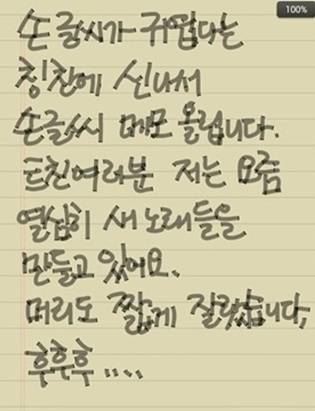 100%
손글씨가 귀엽다는
칭찬에 신나서
손글씨 메모 올립니다.
드친여러분 저는 요즘
열심히 새 노래들을
만들고 있어요.
머리도 짧게 잘랐습니다,
후후후 ....